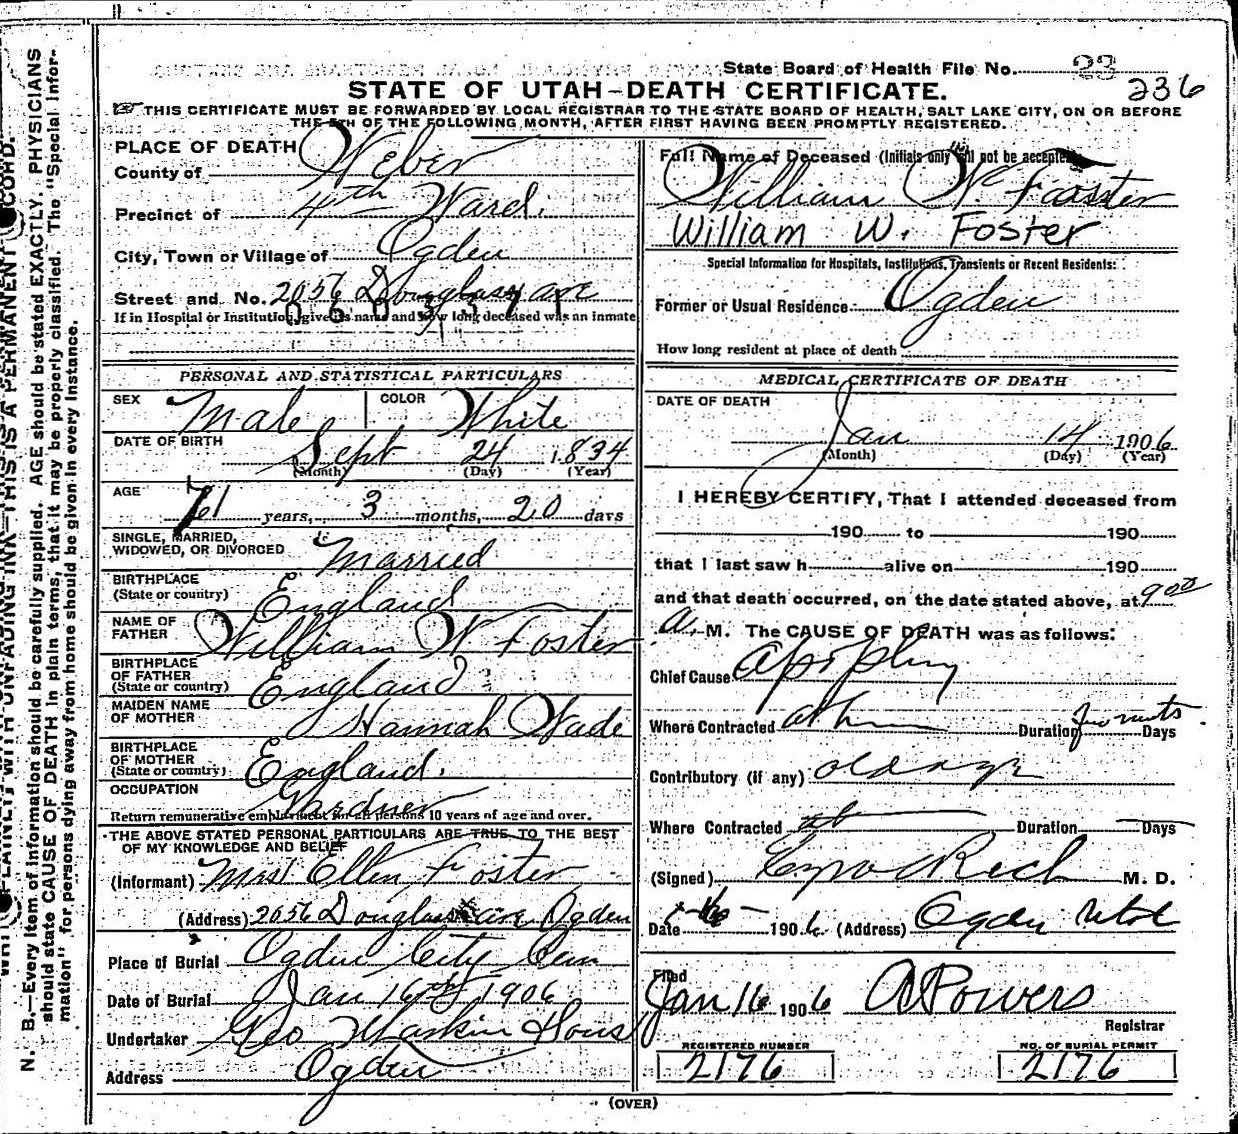 State Board of Health File No. 23
236
STATE OF UTAH—DEATH CERTIFICATE.
THIS CERTIFICATE MUST BE FORWARDED BY LOCAL REGISTRAR TO THE STATE BOARD OF HEALTH, SALT LAKE CITY, ON OR BEFORE
THE 5TH OF THE FOLLOWING MONTH, AFTER FIRST HAVING BEEN PROMPTLY REGISTERED.
PLACE OF DEATH
County of Weber
Precinct of 4th Ward.
City, Town or Village of Ogden
Street and No. 2056 Douglass ave
If in Hospital or Institution, give its name and how long deceased was an inmate
PERSONAL AND STATISTICAL PARTICULARS
SEX Male COLOR White
DATE OF BIRTH
Sept 24 1834
(Month) (Day) (Year)
AGE
71 years, 3 months, 20 days
SINGLE, MARRIED,
WIDOWED, OR DIVORCED Married
BIRTHPLACE
(State or country) England
NAME OF
FATHER William W Foster
BIRTHPLACE
OF FATHER
(State or country) England
MAIDEN NAME
OF MOTHER Hannah Wade
BIRTHPLACE
OF MOTHER
(State or country) England.
OCCUPATION
Gardner
Return remunerative employment for all persons 10 years of age and over.
THE ABOVE STATED PERSONAL PARTICULARS ARE TRUE TO THE BEST
OF MY KNOWLEDGE AND BELIEF
(Informant) Mrs Ellen Foster
(Address) 2056 Douglass ave Ogden
Place of Burial Ogden City Cem
Date of Burial Jan 16th 1906
Undertaker Geo
Address Ogden
Full Name of Deceased (Initials only will not be accepted)
William W Foster
William W. Foster
Special Information for Hospitals, Institutions, Transients or Recent Residents:
Former or Usual Residence Ogden
How long resident at place of death
MEDICAL CERTIFICATE OF DEATH
DATE OF DEATH
Jan 14 1906
(Month) (Day) (Year)
I HEREBY CERTIFY, That I attended deceased from
190 to 190
that I last saw h alive on 190
and that death occurred, on the date stated above, at 9 00
A. M. The CAUSE OF DEATH was as follows:
Chief Cause Apoplexy
Where Contracted Duration Days
Contributory (if any) old age
Where Contracted Duration Days
(Signed) Ezra Rich M. D.
Date 1906 (Address) Ogden Utah
Filed
Jan 16 1906 A Powers
Registrar
REGISTERED NUMBER
2176
NO. OF BURIAL PERMIT
2176
(OVER)
N. B.—Every item of information should be carefully supplied. AGE should be stated EXACTLY. PHYSICIANS
should state CAUSE OF DEATH in plain terms, that it may be properly classified. The "Special Infor-
mation" for persons dying away from home should be given in every instance.